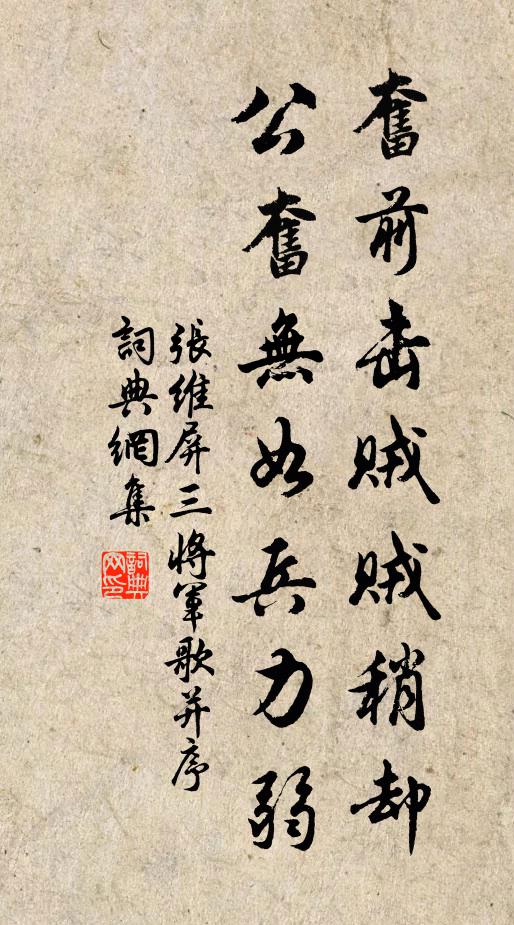 奮前击賊賊稍却
公奮無如兵力弱
張維屏三將軍歌并序
詞典網集
詞典网印